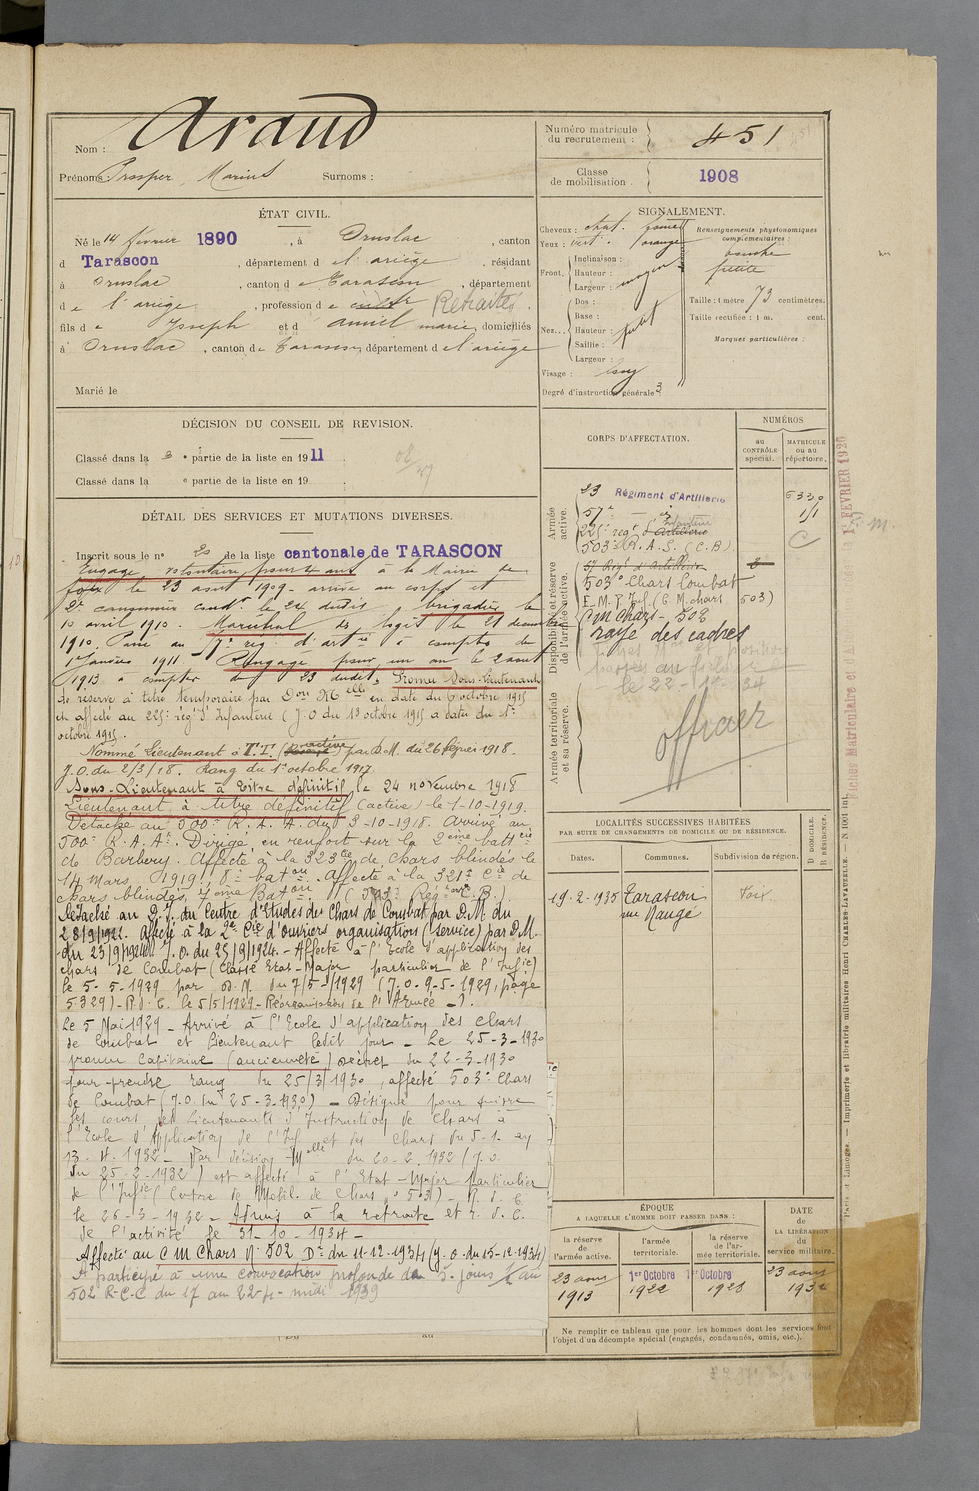 Nom : Araud
Prénoms : Prosper Marius Surnoms :
Numéro matricule du recrutement : 451
Classe de mobilisation . 1908
ÉTAT CIVIL.
Né le 14 février 1890 , à Ornolac , canton
d Tarascon , département d e l'ariège , résidant
à Ornolac , canton d e Tarascon , département
d e l'ariège , profession d e cult Retraité
fils d e Joseph et d amiel marie, domiciliés
à Ornolac , canton d e Tarascon, département d e l'ariège
Marié le
DÉCISION DU CONSEIL DE REVISION.
Classé dans la 3 e partie de la liste en 1911 .
Classé dans la e partie de la liste en 19 .
DÉTAIL DES SERVICES ET MUTATIONS DIVERSES.
Inscrit sous le n° 20 de la liste cantonale de TARASCON
Engagé volontaire pour 4 ans à la Mairie de
foix le 23 aout 1909 - arrivé au corps et
2e canonnier condr le 24 dudit brigadier le
10 avril 1910. Maréchal des logis le 21 décembre
1910. Passé au 57e rég. d'artie à compter du
1er janvier 1911 Rengagé pour un an le 2 aout
1913 à compter du 23 dudit. Promu Sous-Lieutenant
de réserve à titre temporaire par Don Mlle en date du 6 octobre 1915
et affecté au 225e rég d'Infanterie (J.O du 13 octobre 1915 a dater du 1er
octobre 1915.
Nommé Lieutenant à T.T. (active) par D.M. du 26 février 1918.
J.O. du 2/3/18. Rang du 1er octobre 1917.
Sous-Lieutenant à titre définitif le 24 novembre 1918
Lieutenant à titre définitif (active) le 1-10-1919.
Détaché au 500e R.A.A. du 3-10-1918. Arrivé au
500e R.A.As. Dirigé en renfort sur la 2ème battie
de Barbery. Affecté à la 323cie de chars blindés le
14 Mars 1919. 8e baton. Affecté à la 321e Cie de
chars blindés, 7eme Baton
Détaché au D.I. du Centre d'Etudes des Chars de Combat par D.M du
28/9/1921. Affecté à la 2e Cie d'ouvriers organisation (service) par D.M.
du 23/9/1924. J.O. du 25/9/1924. - Affecté à l'Ecole d'application des
chars de Combat (classé Etat-Major particulier de l'Infie)
le 5-5-1929 par D.M. du 7/5/1929 (J.O. 9-5-1929, page
5329) - R.d.C. le 5/5/1929 - Réorganisation de l'Armée -
Le 5 Mai 1929 - Arrivé à l'Ecole d'application des chars
de Combat et Lieutenant ledit jour - Le 25-3-1930
promu Capitaine (ancienneté) Décret du 22-3-1930
pour prendre rang du 25/3/1930, affecté 503e Chars
de Combat (J.O. du 25-3-1930) - Désigné pour suivre
les cours des Lieutenants d'Instruction de Chars à
l'Ecole d'Application de l'Inf et des Chars du 5-1 au
13-4-1932 - Par décision Melle du 20-2-1932 (J.O.
du 25-2-1932) est affecté à l'Etat-Major Particulier
de l'Infie (Centre de Mobil. de Chars n° 503) - R.d.C.
le 26-3-1932 - Admis à la retraite et r.d.C.
de l'activité le 31-10-1934 -
Affecté au C M Chars N° 502 Don du 11-12-1934 (J.O. du 15-12-1934)
A participé à une convocation profonde de 5 jours 1/2 au
502 R.C.C du 17 au 22-4- midi 1939
SIGNALEMENT.
Cheveux : chat.
Yeux : vert orange
Front. Inclinaison :
Hauteur : moyen
Largeur :
Nez... Dos :
Base :
Hauteur : petit
Saillie :
Largeur :
Visage : long
Degré d'instruction générale : 3
Renseignements physionomiques complémentaires :
bouche
petite
Taille : 1 mètre 73 centimètres.
Taille rectifiée : 1 m. cent.
Marques particulières :
CORPS D'AFFECTATION.
NUMÉROS
au CONTRÔLE spécial.
MATRICULE ou au répertoire.
Armée active.
23 Régiment d'Artillerie 6330
57e — d° 1/1
225e régt d'Artillerie Infanterie
503e R.A.S. (C.B)
Disponibilité et réserve de l'armée active.
57 Régt d'Artillerie
503e Chars Combat
E.M.P. Inf. (C.M. chars 503)
C M Chars - 502
rayé des cadres
le 22-10-34
officier
Armée territoriale et sa réserve.
LOCALITÉS SUCCESSIVES HABITÉES
PAR SUITE DE CHANGEMENTS DE DOMICILE OU DE RÉSIDENCE.
Dates. Communes. Subdivision de région. D DOMICILE. R RÉSIDENCE.
19.2.1935 Tarascon Foix
rue Naugé
ÉPOQUE
A LAQUELLE L'HOMME DOIT PASSER DANS :
la réserve de l'armée active. l'armée territoriale. la réserve de l'armée territoriale.
DATE de LA LIBÉRATION du service militaire.
23 aout 1913
1er Octobre 1922
1er Octobre 1928
23 aout 1934
Ne remplir ce tableau que pour les hommes dont les services font
l'objet d'un décompte spécial (engagés, condamnés, omis, etc.).
Paris et Limoges. — Imprimerie et librairie militaires Henri CHARLES-LAVAUZELLE. — N 1001